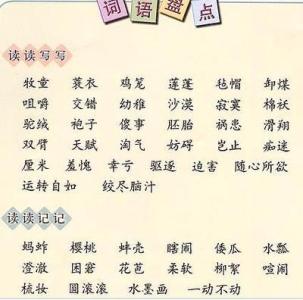 词语盘点
读读写写
牧童 蓑衣 鸡笼 莲蓬 毡帽 卸煤
咀嚼 交错 幼稚 沙漠 寂寞 棉袄
驼绒 袍子 傻事 胚胎 祸患 滑翔
双臂 天赋 淘气 妨碍 岂止 痴迷
厘米 羞愧 幸亏 驱逐 迫害 随心所欲
运转自如 绞尽脑汁
读读记记
蚂蚱 樱桃 蚌壳 瞎闹 倭瓜 水瓢
澄澈 困窘 花苞 柔软 柳絮 喧闹
梳妆 圆滚滚 水墨画 一动不动